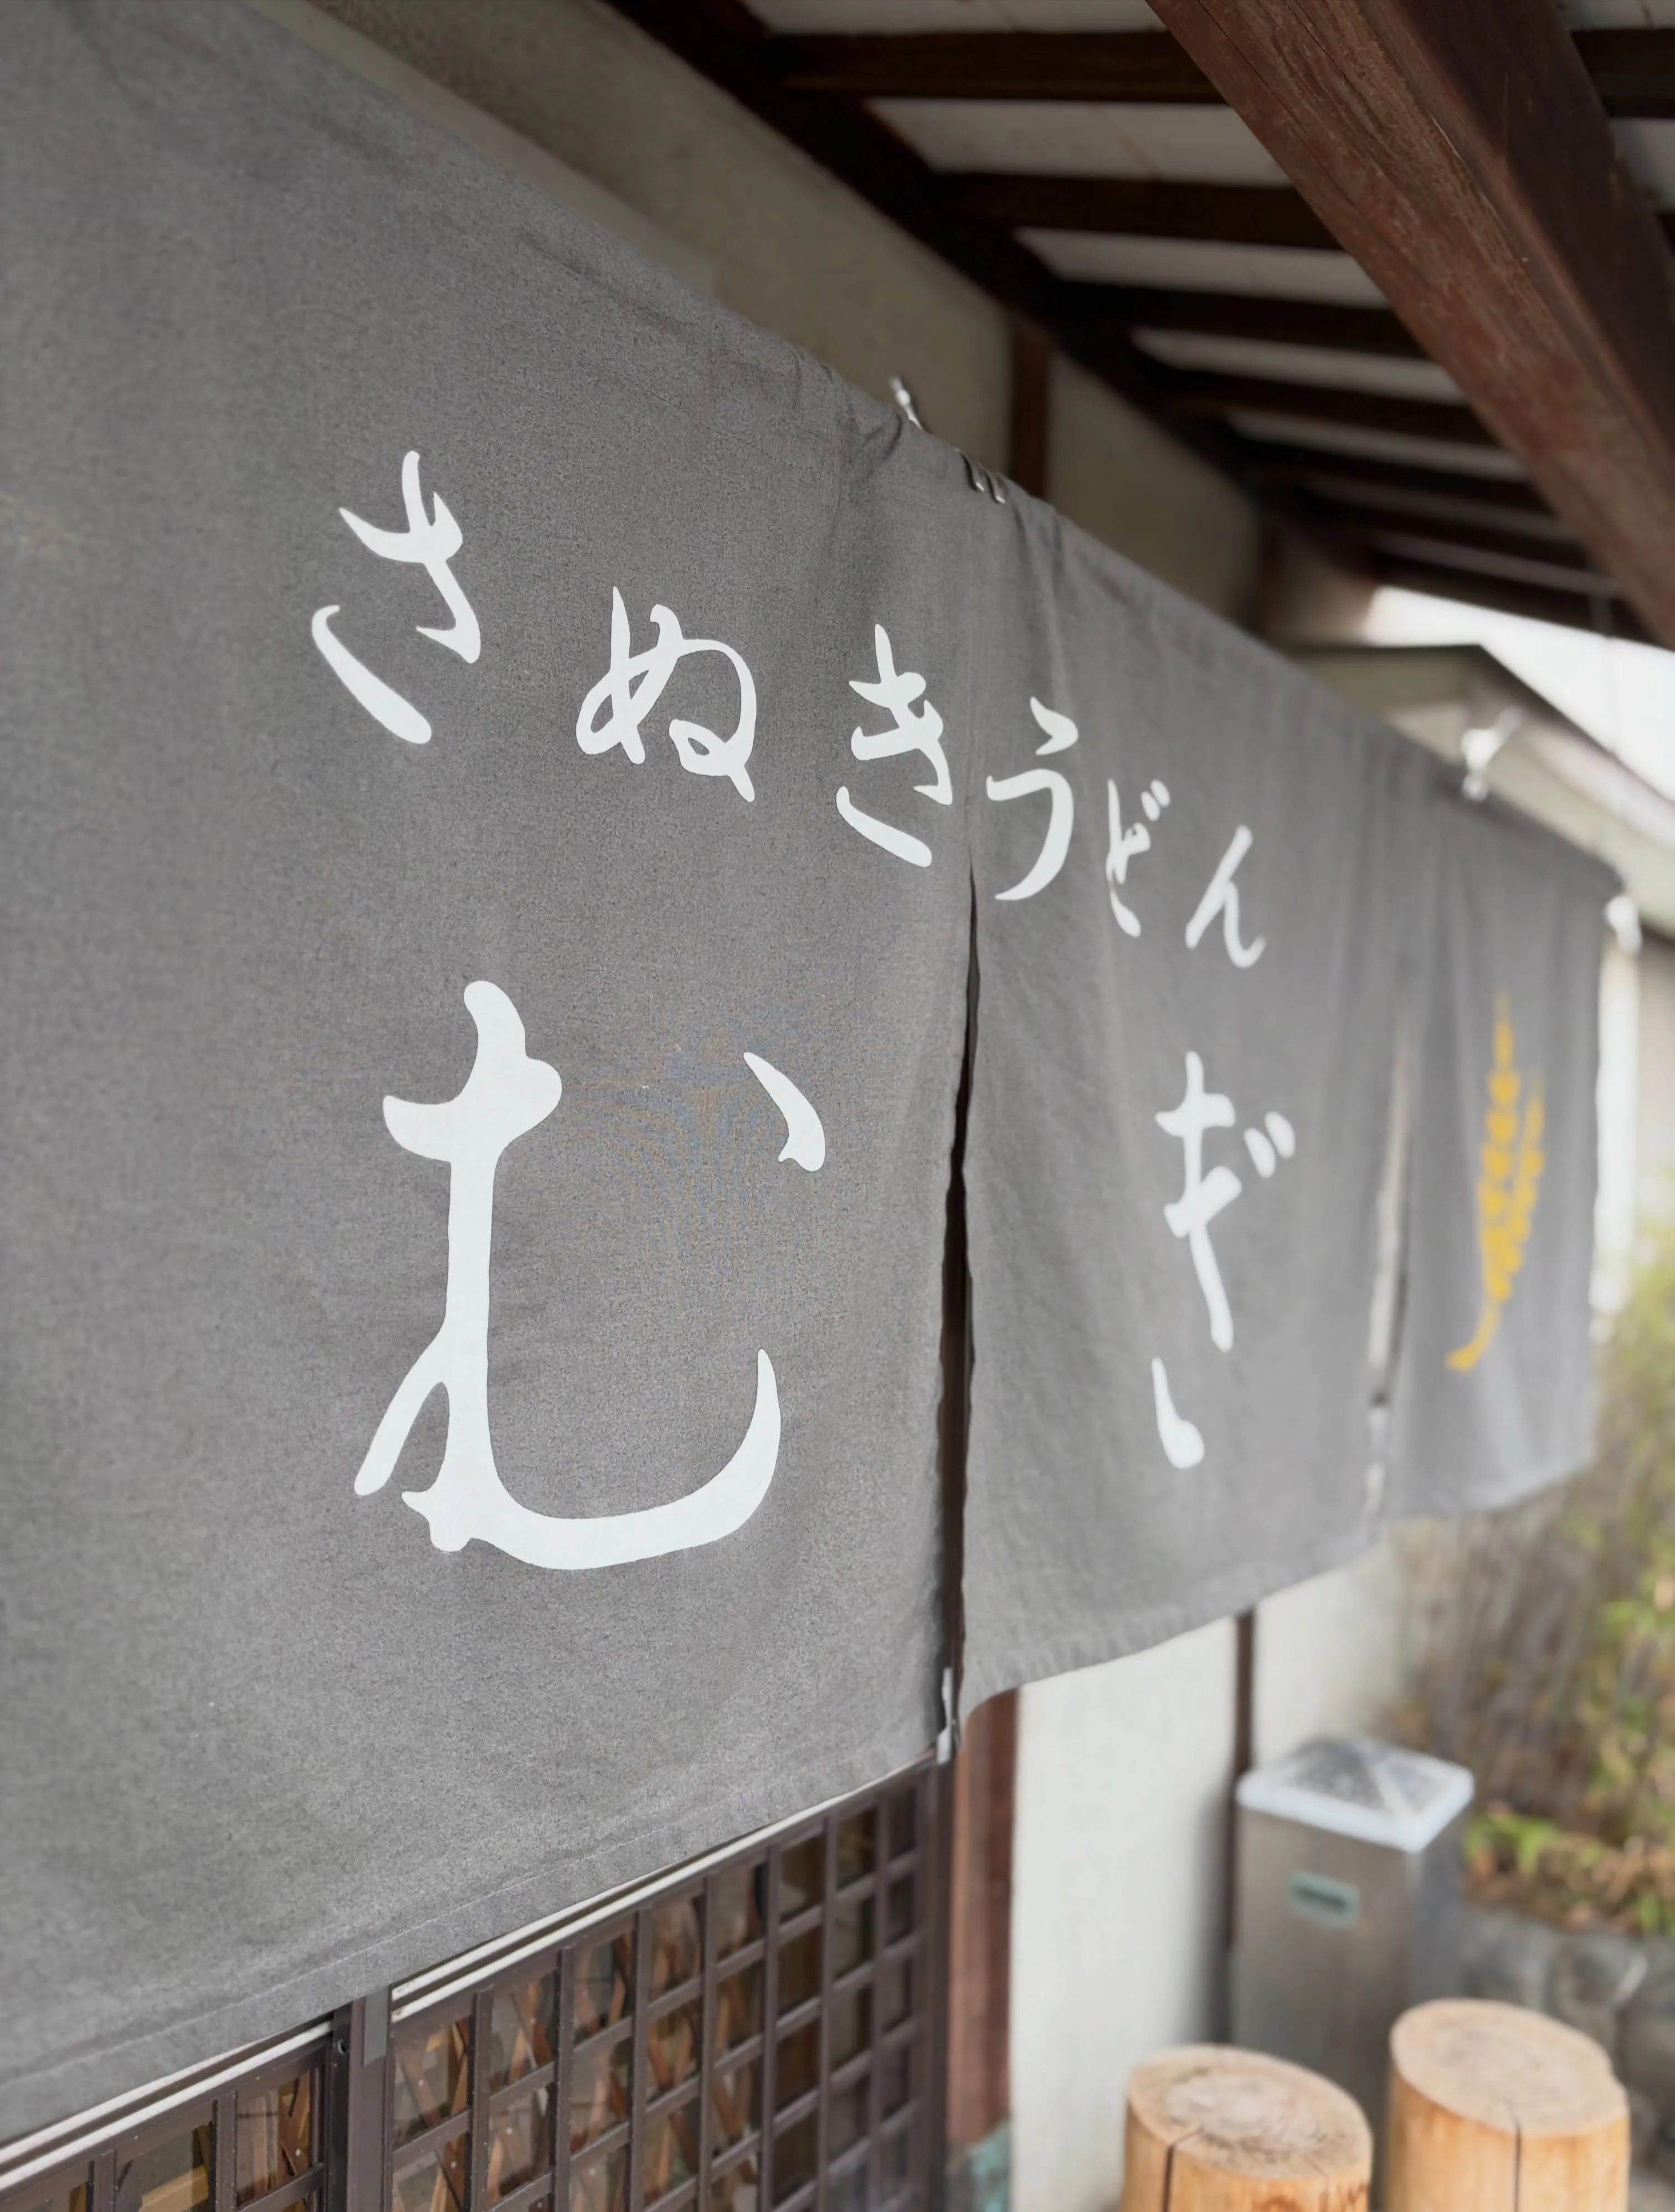 さぬきうどん
むぎ